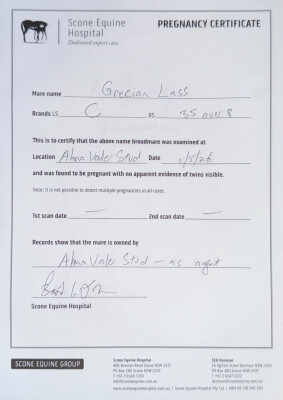 Scone Equine
Hospital
Dedicated expert care
PREGNANCY CERTIFICATE
Mare name Grecian Lass
Brands LS C RS 35 over 8
This is to certify that the above name broodmare was examined at
Location Alma Vale Stud Date 1/5/26
and was found to be pregnant with no apparent evidence of twins visible.
Note: It is not possible to detect multiple pregnancies in all cases.
1st scan date — 2nd scan date —
Records show that the mare is owned by
Alma Vale Stud - as agent
Scone Equine Hospital
SCONE EQUINE GROUP
Scone Equine Hospital
SEH Denman